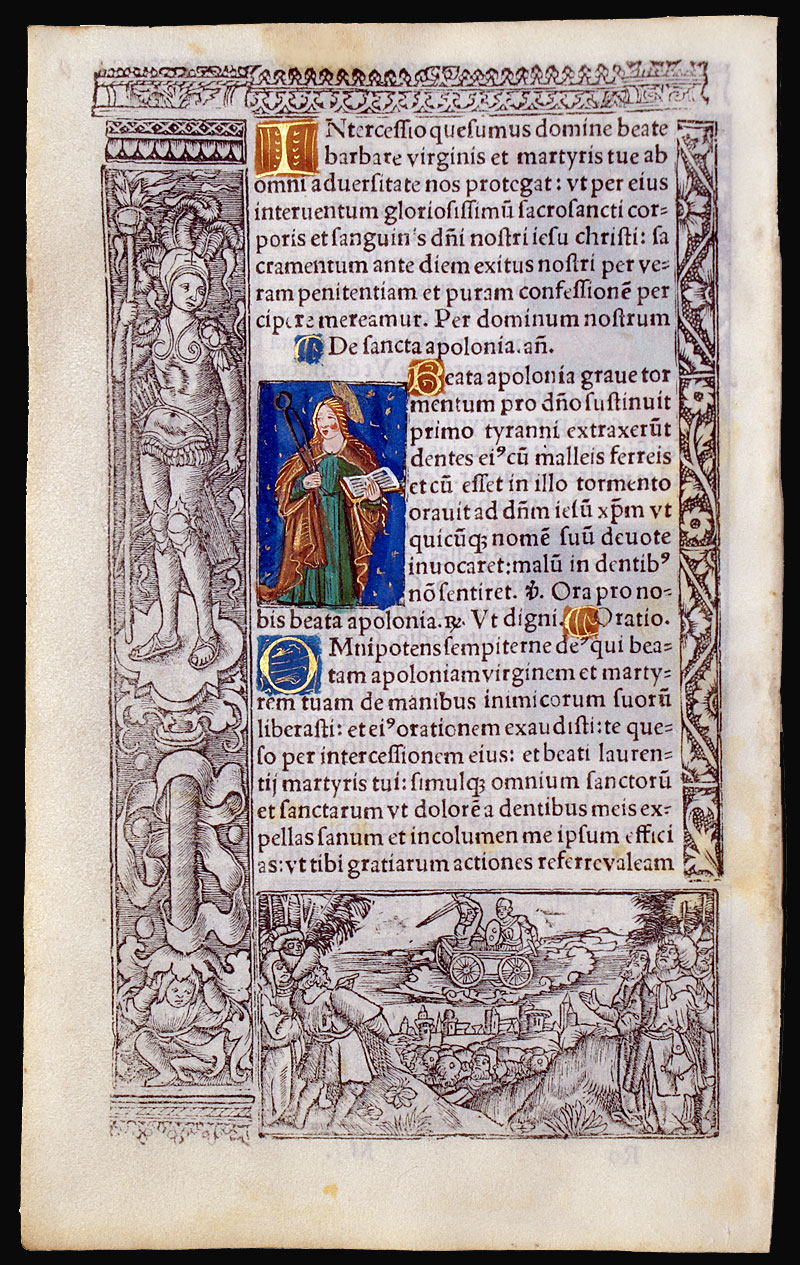 INtercessio quesumus domine beate
barbare virginis et martyris tue ab
omni aduersitate nos protegat: vt per eius
interuentum gloriosissimū sacrosancti cor=
poris et sanguinis dn̄i nostri iesu christi: sa
cramentum ante diem exitus nostri per ve=
ram penitentiam et puram confessionē per
cipere mereamur. Per dominum nostrum
De sancta apolonia. an̄.
Beata apolonia graue tor
mentum pro dn̄o sustinuit
primo tyranni extraxerūt
dentes eiꝰ cū malleis ferreis
et cū esset in illo tormento
orauit ad dn̄m iesū xp̄m vt
quicūqꝫ nomē suū deuote
inuocaret: malū in dentibꝰ
nō sentiret. ℣. Ora pro no=
bis beata apolonia. ℟. Vt digni. Oratio.
OMnipotens sempiterne deꝰ qui bea=
tam apoloniam virginem et marty=
rem tuam de manibus inimicorum suorū
liberasti: et eiꝰ orationem exaudisti: te que=
so per intercessionem eius: et beati lauren=
tij martyris tui: simulqꝫ omnium sanctorū
et sanctarum vt dolorē a dentibus meis ex=
pellas sanum et incolumen me ipsum effici
as: vt tibi gratiarum actiones referre valeam